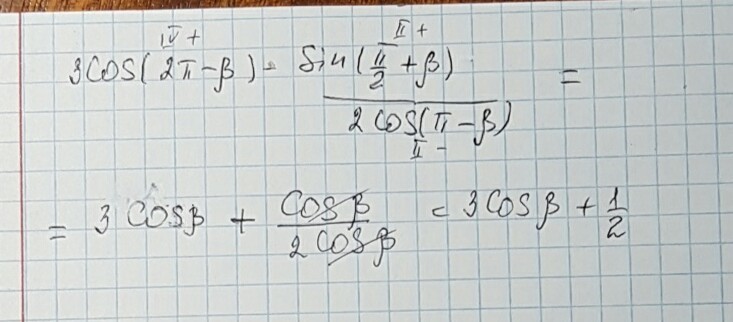 IV + II +
3cos(2π-β) - sin(π/2 + β) / 2cos(π-β) =
II -
= 3cosβ + cosβ / 2cosβ = 3cosβ + 1/2